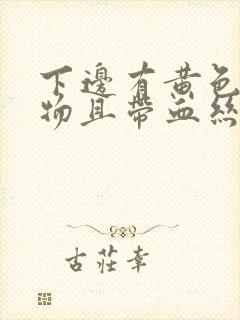 下邊有黃色
物且帶血絲
古莊幸